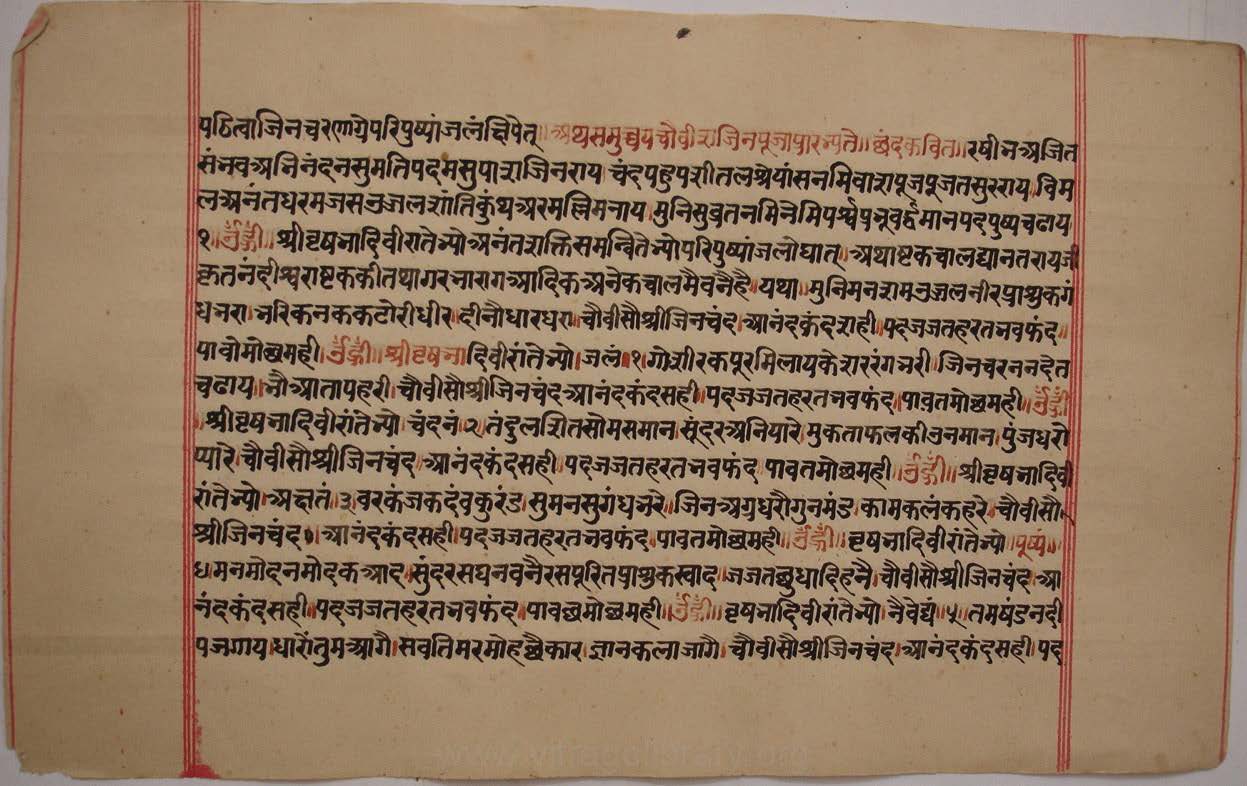 पठित्वाजिनचरणाग्रेपरिपुष्पांजलंक्षिपेत् ॥अथसमुच्चयचौवीशजिनपूजाप्रारभ्यते॥ छंदकवित॥रषीभअजित
संभवअभिनंदनसुमतिपदमसुपाराजिनराय चंदपहुपशीतलश्रेयांसनमिवाशपूजपूजतसुरराय विम
लअनंतधरमजसउजलशांतिकुंथअरमल्लिमनाय मुनिसुव्रतनमिनेमिपर्श्वप्रभूवर्द्धमानपदपुष्पचढाय
१ ॥ॐह्रीँ॥ श्रीवृषभादिवीरांतेभ्योअनंतशक्तिसमन्वितेभ्योपरिपुष्पांजलोघात् ॥अथाष्टकचालद्यानतरायजी
कृतनंदीश्वराष्टककीतथागरभारागआदिकअनेकचालमैवनैहै॥यथा॥मुनिमनरामउजलनीरप्राशुकगं
धभरा।भरिकनककटोरीधीर।दीनौधारधरा।चौवीसौश्रीजिनचंद।आनंदकंदशही।पदजजतहरतभवफंद॥
पावोमोछमही।ॐह्रीँ॥ श्रीवृषभादिवीरांतेभ्यो।जलं॥१॥गोशीरकपूरमिलायकेशररंगभरी।जिनचरननदेत
चढाय।भौआतापहरी।चौवीसौश्रीजिनचंदआनंदकंदसही।पदजजतहरतभवफंद।पावतमोछमही।ॐह्रीँ
॥श्रीवृषभादिवीरांतेभ्यो चंदनं।२।तंदुलशितसोमसमान।सूंदरअनियारे।मुकताफलकीउनमान।पुंजधरो
प्यारे।चौवीसौश्रीजिनचंद।आनंदकंदसही।पदजजतहरतभवफंद पावतमोछमही।ॐह्रीँ॥ श्रीवृषभादिवी
रांतेभ्यो।अक्षतं।३।वरकंजकदंवकुरंड।सुमनसुगंधभरे।जिनअग्रधरौगुनमंड।कामकलंकहरे।चौवीसौ
श्रीजिनचंद।आनंदकंदसही।पदजजतहरतभवफंद।पावतमोछमही।ॐह्रीँ॥ वृषभादिवीरांतेभ्यो॥पूष्पं॥
धमनमोदनमोदकआद।सुंदरसद्यनवनैरसपूरितप्राशुकस्वाद।जजतछुधादिहनै।चौवीसौश्रीजिनचंद।आ
नंदकंदसही।पदजजतहरतभवफंद।पावछमोछमही।ॐह्रीँ॥ वृषभादिवीरांतेभ्यो।नैवेद्यं।५।तमषंडनदी
पजगाय।धारौंतुमआगै।सवतिमरमोहछैकार।ज्ञानकलाजागै।चौवीसौश्रीजिनचंद।आनंदकंदसही।पद